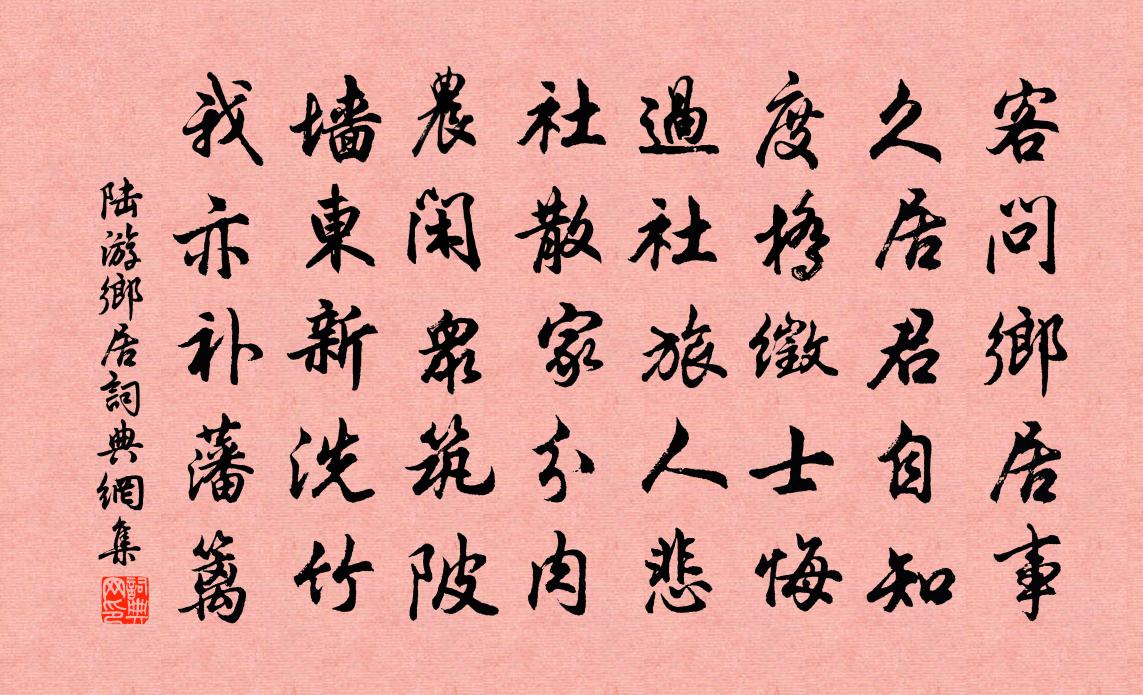 客問鄉居事
久居君自知
度橋徵士悔
過社旅人悲
社散家分肉
農闲衆筑陂
墻東新洗竹
我亦补藩篱
陆游鄉居詞典網集
詞典
网印